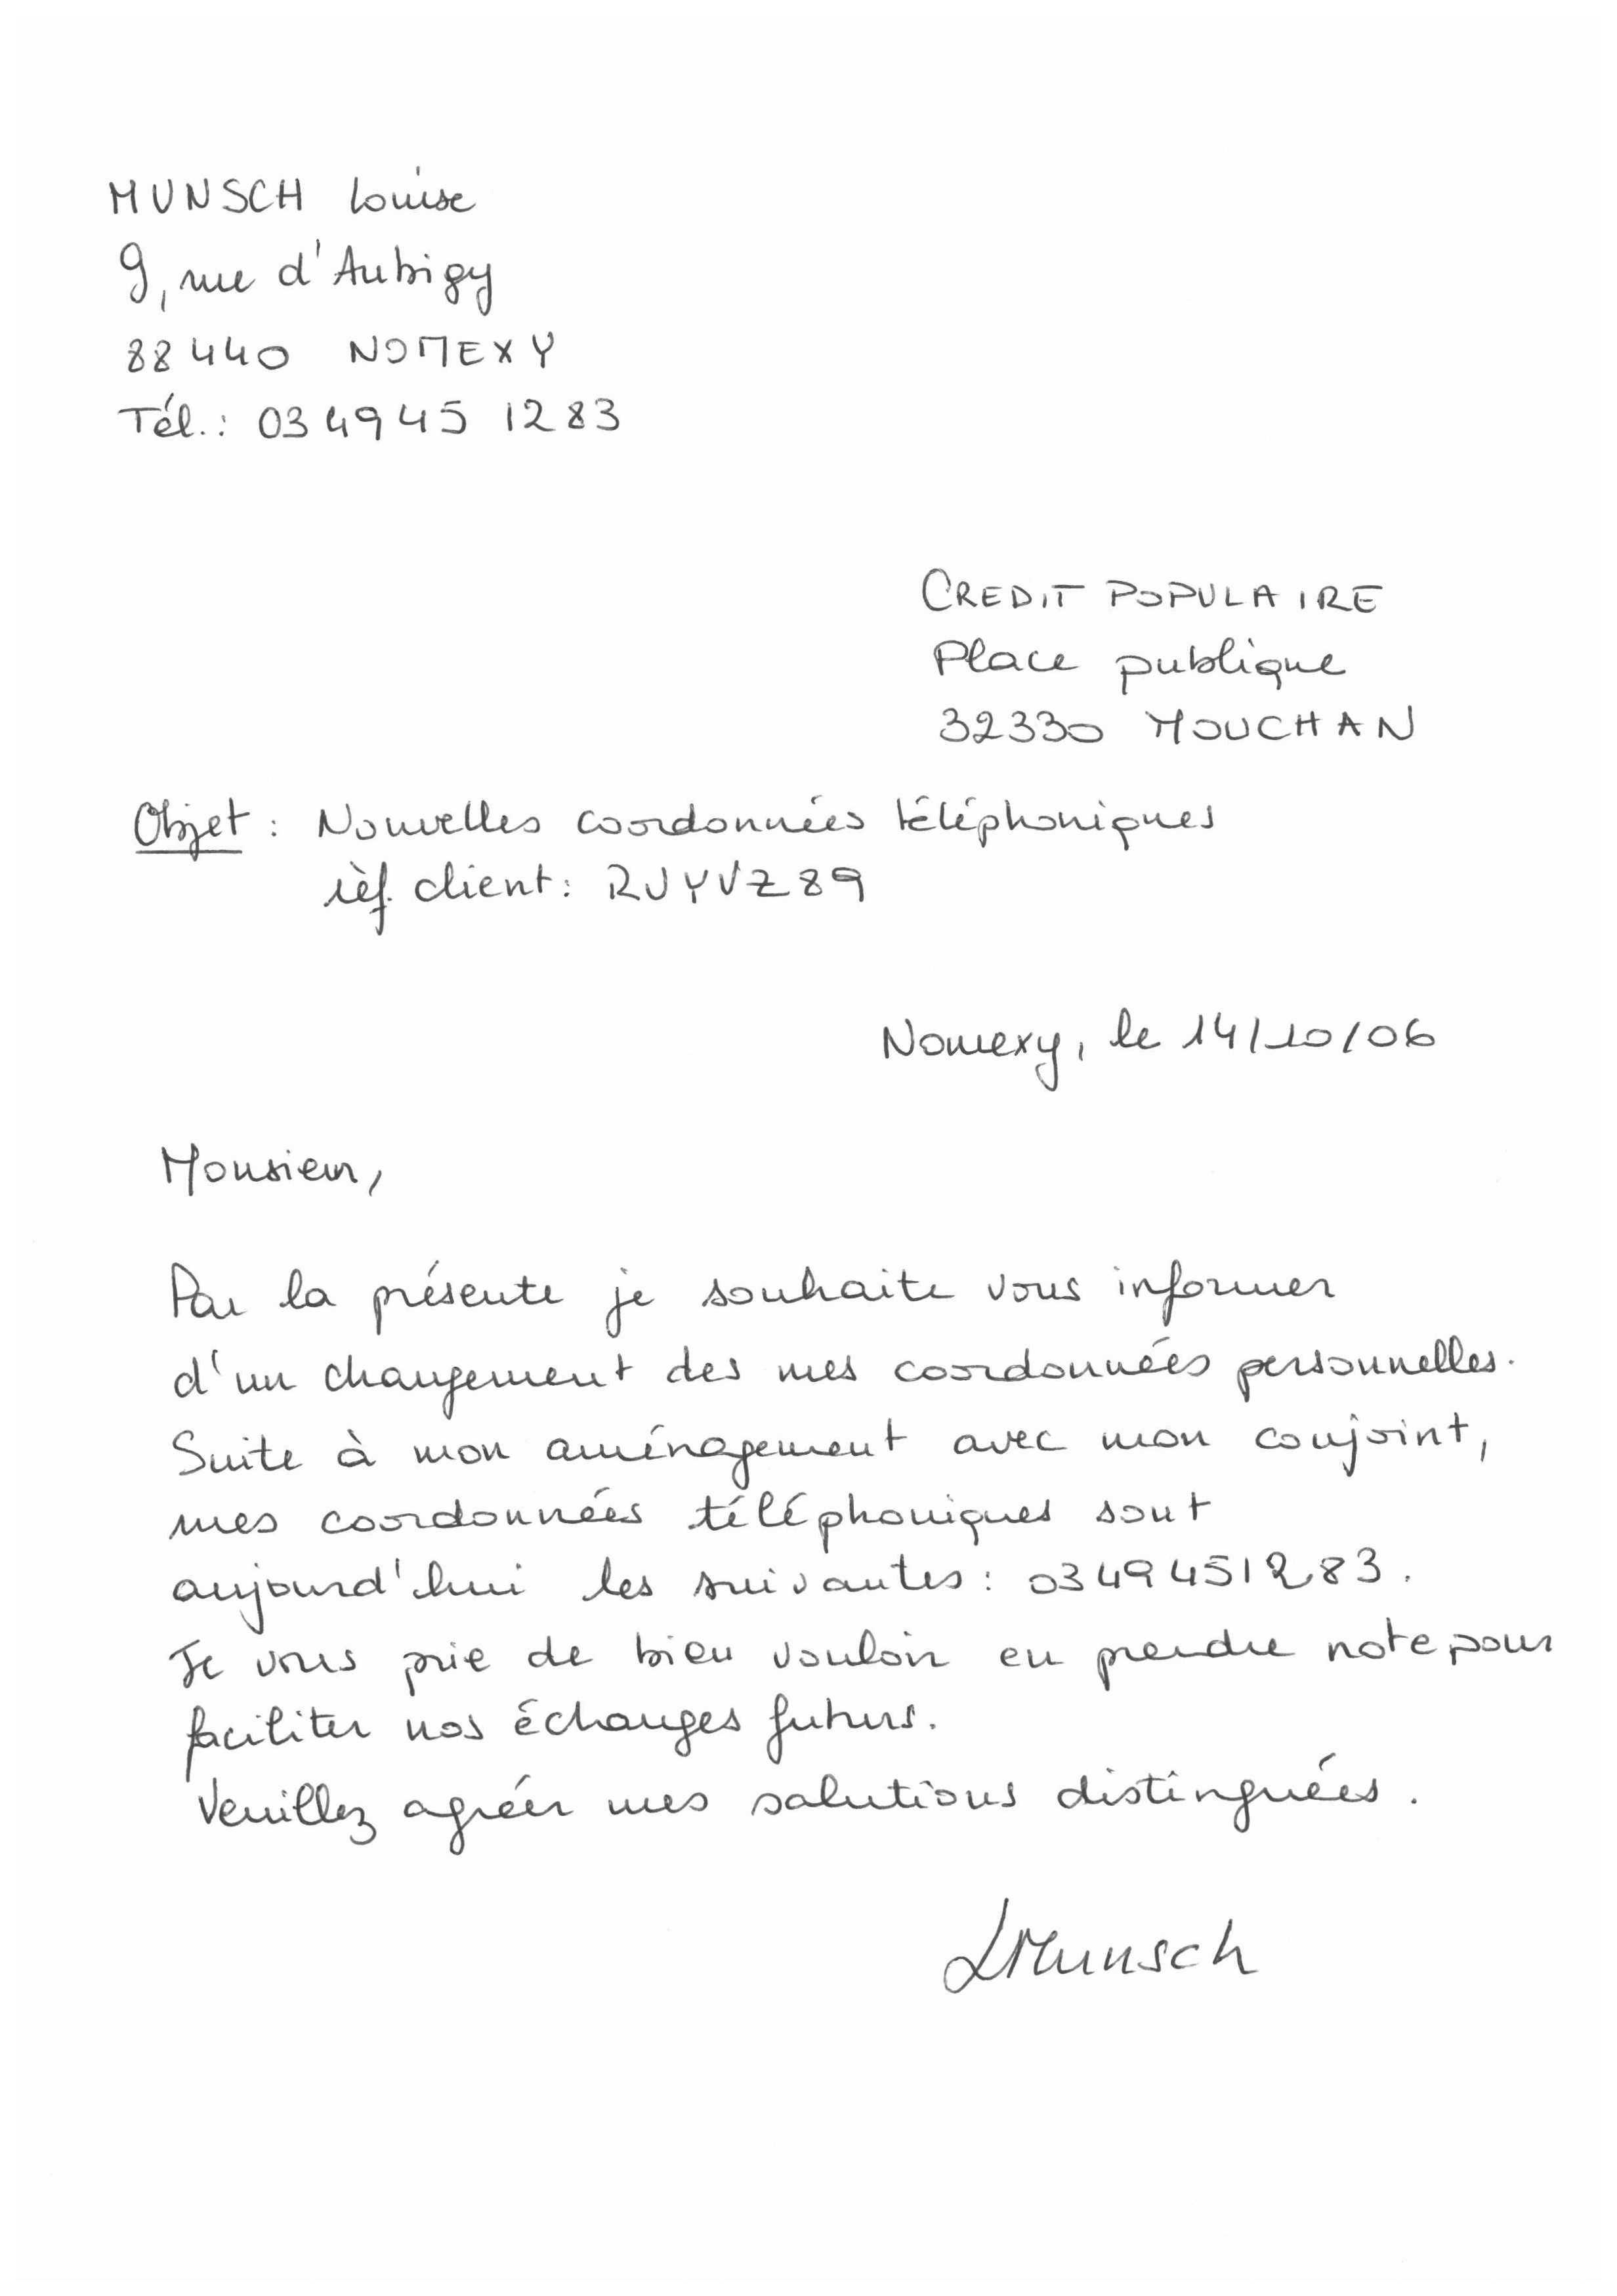 MUNSCH Louise
9, rue d'Aubigy
88440 NOMEXY
Tél.: 03 49 45 12 83
CREDIT POPULAIRE
Place publique
32330 MOUCHAN
Objet : Nouvelles coordonnées téléphoniques
réf. client : RJYVZ89
Nomexy, le 14/10/06
Monsieur,
Par la présente je souhaite vous informer
d'un changement des mes coordonnées personnelles.
Suite à mon aménagement avec mon conjoint,
mes coordonnées téléphoniques sont
aujourd'hui les suivantes : 0349451283.
Je vous prie de bien vouloir en prendre note pour
faciliter nos échanges futurs.
Veuillez agréer mes salutions distinguées.
LMunsch